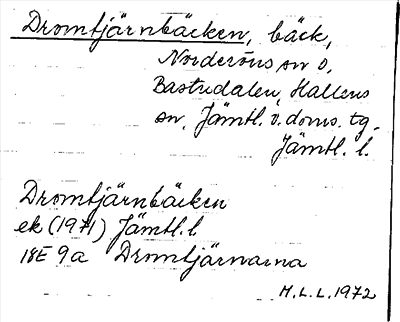 Dromtjärnbäcken, bäck,
Norderöns sn o.
Bastudalen, Hallens
sn, Jämtl. v. doms. tg.
Jämtl. l.
Dromtjärnbäcken
ek (1971) Jämtl. l
18E 9a Dromtjärnarna
H.L.L. 1972